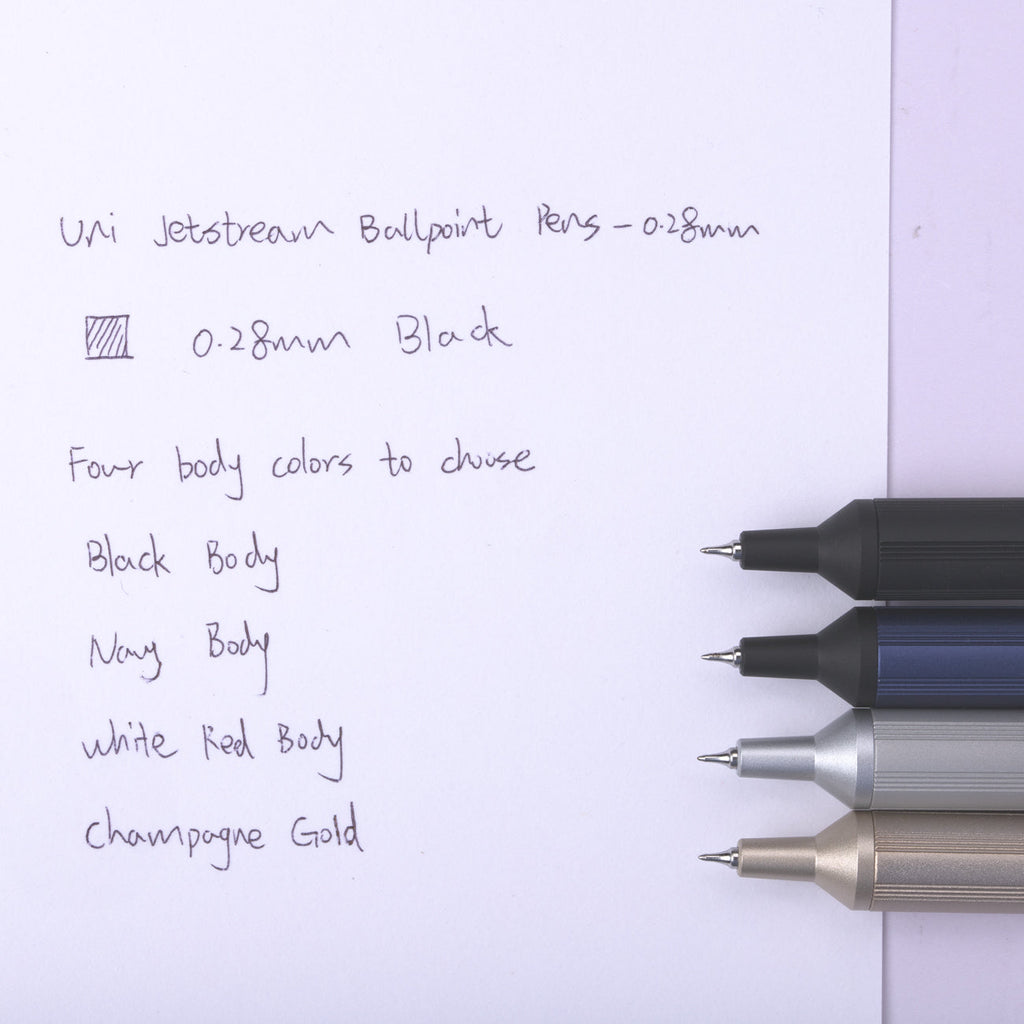 Uni Jetstream Ballpoint Pens - 0.28mm
0.28mm Black
Four body colors to choose
Black Body
Navy Body
White Red Body
Champagne Gold